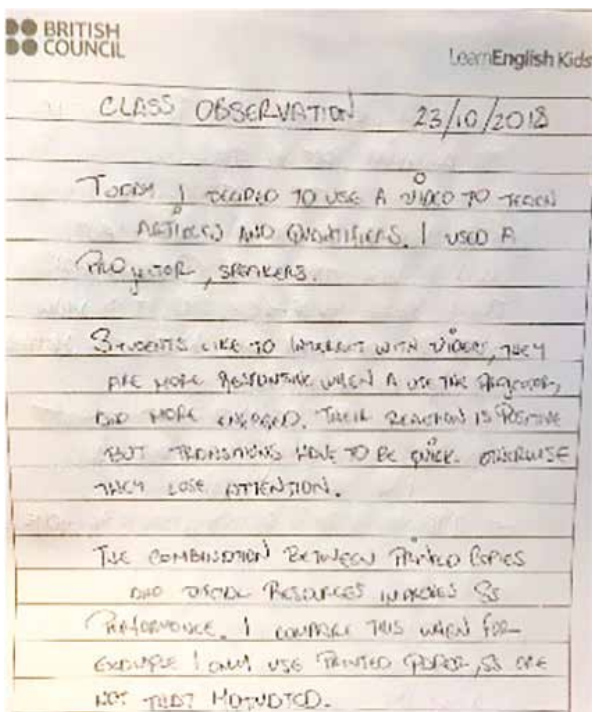 BRITISH
COUNCIL
LearnEnglish Kids
CLASS OBSERVATION 23/10/2018
TODAY I DECIDED TO USE A VIDEO TO TEACH
ARTICLES AND QUANTIFIERS. I USED A
PROYECTOR, SPEAKERS.
STUDENTS LIKE TO INTERACT WITH VIDEOS, THEY
ARE MORE RESPONSIVE WHEN A USE THE PROJECTOR,
AND MORE ENGAGED. THEIR REACTION IS POSITIVE
BUT TRANSITIONS HAVE TO BE QUICK. OTHERWISE
THEY LOSE ATTENTION.
THE COMBINATION BETWEEN PRINTED COPIES
AND DIGITAL RESOURCES IMPROVES Ss
PERFORMANCE. I COMPARE THIS WHEN FOR
EXAMPLE I ONLY USE PRINTED PAPER, Ss ARE
NOT THAT MOTIVATED.